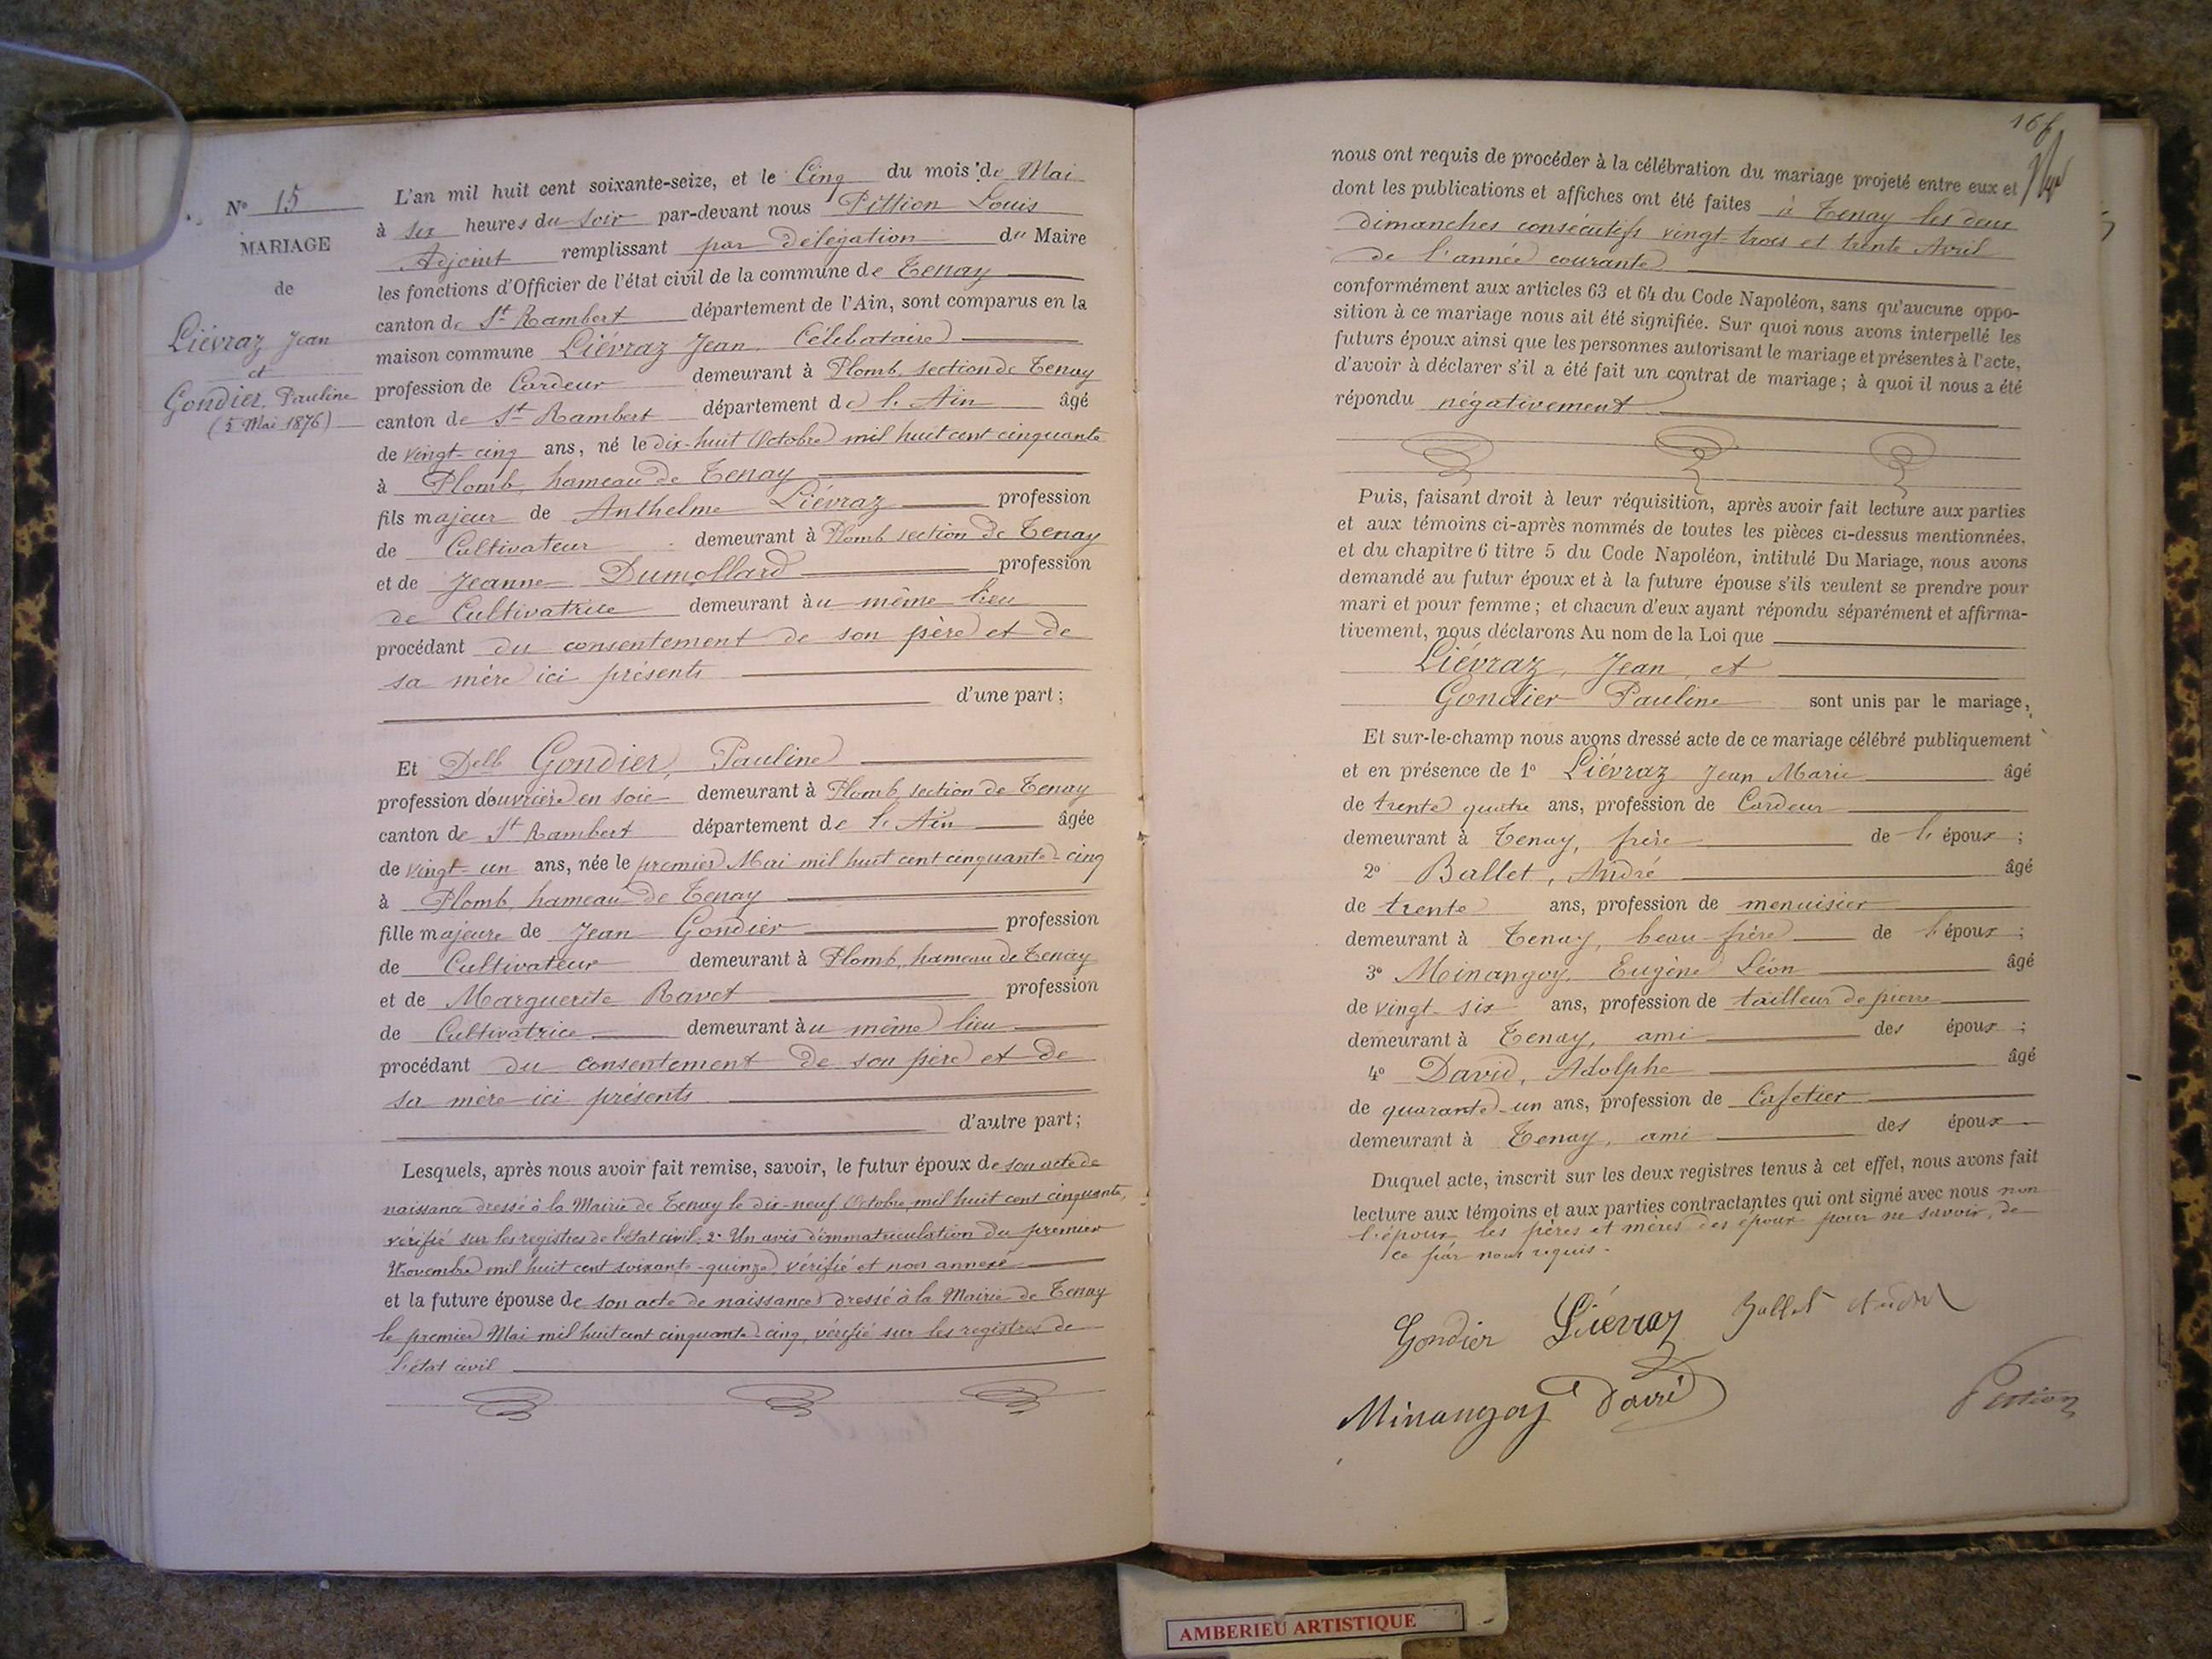 N° 15
MARIAGE
de
Liévraz Jean
et
Gondier, Pauline
(5 Mai 1876)
L'an mil huit cent soixante-seize, et le Cinq du mois de Mai
à six heures du soir par-devant nous Pittion Louis
Adjoint remplissant par délégation du Maire
les fonctions d'Officier de l'état civil de la commune de Tenay
canton de St Rambert département de l'Ain, sont comparus en la
maison commune Liévraz Jean, Célibataire
profession de Cardeur demeurant à Plomb, section de Tenay
canton de St Rambert département de l'Ain âgé
de vingt-cinq ans, né le dix-huit Octobre mil huit cent cinquante
à Plomb, hameau de Tenay
fils majeur de Anthelme Liévraz profession
de Cultivateur demeurant à Plomb section de Tenay
et de Jeanne Dumollard profession
de Cultivatrice demeurant au même lieu
procédant du consentement de son père et de
sa mère ici présents
d'une part;
Et Delle Gondier, Pauline
profession d'ouvrière en soie demeurant à Plomb, section de Tenay
canton de St Rambert département de l'Ain âgée
de vingt-un ans, née le premier Mai mil huit cent cinquante-cinq
à Plomb, hameau de Tenay
fille majeure de Jean Gondier profession
de Cultivateur demeurant à Plomb, hameau de Tenay
et de Marguerite Ravet profession
de Cultivatrice demeurant au même lieu
procédant du consentement de son père et de
sa mère ici présents
d'autre part;
Lesquels, après nous avoir fait remise, savoir, le futur époux de son acte de
naissance dressé à la Mairie de Tenay le dix-neuf Octobre mil huit cent cinquante,
vérifié sur les registres de l'état civil, 2° Un avis d'immatriculation du premier
Novembre mil huit cent soixante-quinze, vérifié et non annexé
et la future épouse de son acte de naissance dressé à la Mairie de Tenay
le premier Mai mil huit cent cinquante-cinq, vérifié sur les registres de
l'état civil
16
nous ont requis de procéder à la célébration du mariage projeté entre eux et
dont les publications et affiches ont été faites à Tenay les deux
dimanches consécutifs vingt-trois et trente Avril
de l'année courante
conformément aux articles 63 et 64 du Code Napoléon, sans qu'aucune oppo-
sition à ce mariage nous ait été signifiée. Sur quoi nous avons interpellé les
futurs époux ainsi que les personnes autorisant le mariage et présentes à l'acte,
d'avoir à déclarer s'il a été fait un contrat de mariage; à quoi il nous a été
répondu négativement
Puis, faisant droit à leur réquisition, après avoir fait lecture aux parties
et aux témoins ci-après nommés de toutes les pièces ci-dessus mentionnées,
et du chapitre 6 titre 5 du Code Napoléon, intitulé Du Mariage, nous avons
demandé au futur époux et à la future épouse s'ils veulent se prendre pour
mari et pour femme; et chacun d'eux ayant répondu séparément et affirma-
tivement, nous déclarons Au nom de la Loi que
Liévraz, Jean, et
Gondier Pauline sont unis par le mariage,
Et sur-le-champ nous avons dressé acte de ce mariage célébré publiquement
et en présence de 1° Liévraz Jean Marie âgé
de trente quatre ans, profession de Cardeur
demeurant à Tenay, frère de l'époux;
2° Ballet, André âgé
de trente ans, profession de menuisier
demeurant à Tenay, beau-frère de l'époux;
3° Minangoy, Eugène Léon âgé
de vingt-six ans, profession de tailleur de pierre
demeurant à Tenay, ami des époux;
4° David, Adolphe âgé
de quarante-un ans, profession de Cafetier
demeurant à Tenay, ami des époux
Duquel acte, inscrit sur les deux registres tenus à cet effet, nous avons fait
lecture aux témoins et aux parties contractantes qui ont signé avec nous non
l'époux les pères et mères des époux pour ne savoir, de
ce par nous requis.
Gondier Liévraz Ballet André
Minangoy David
Pittion
AMBERIEU ARTISTIQUE